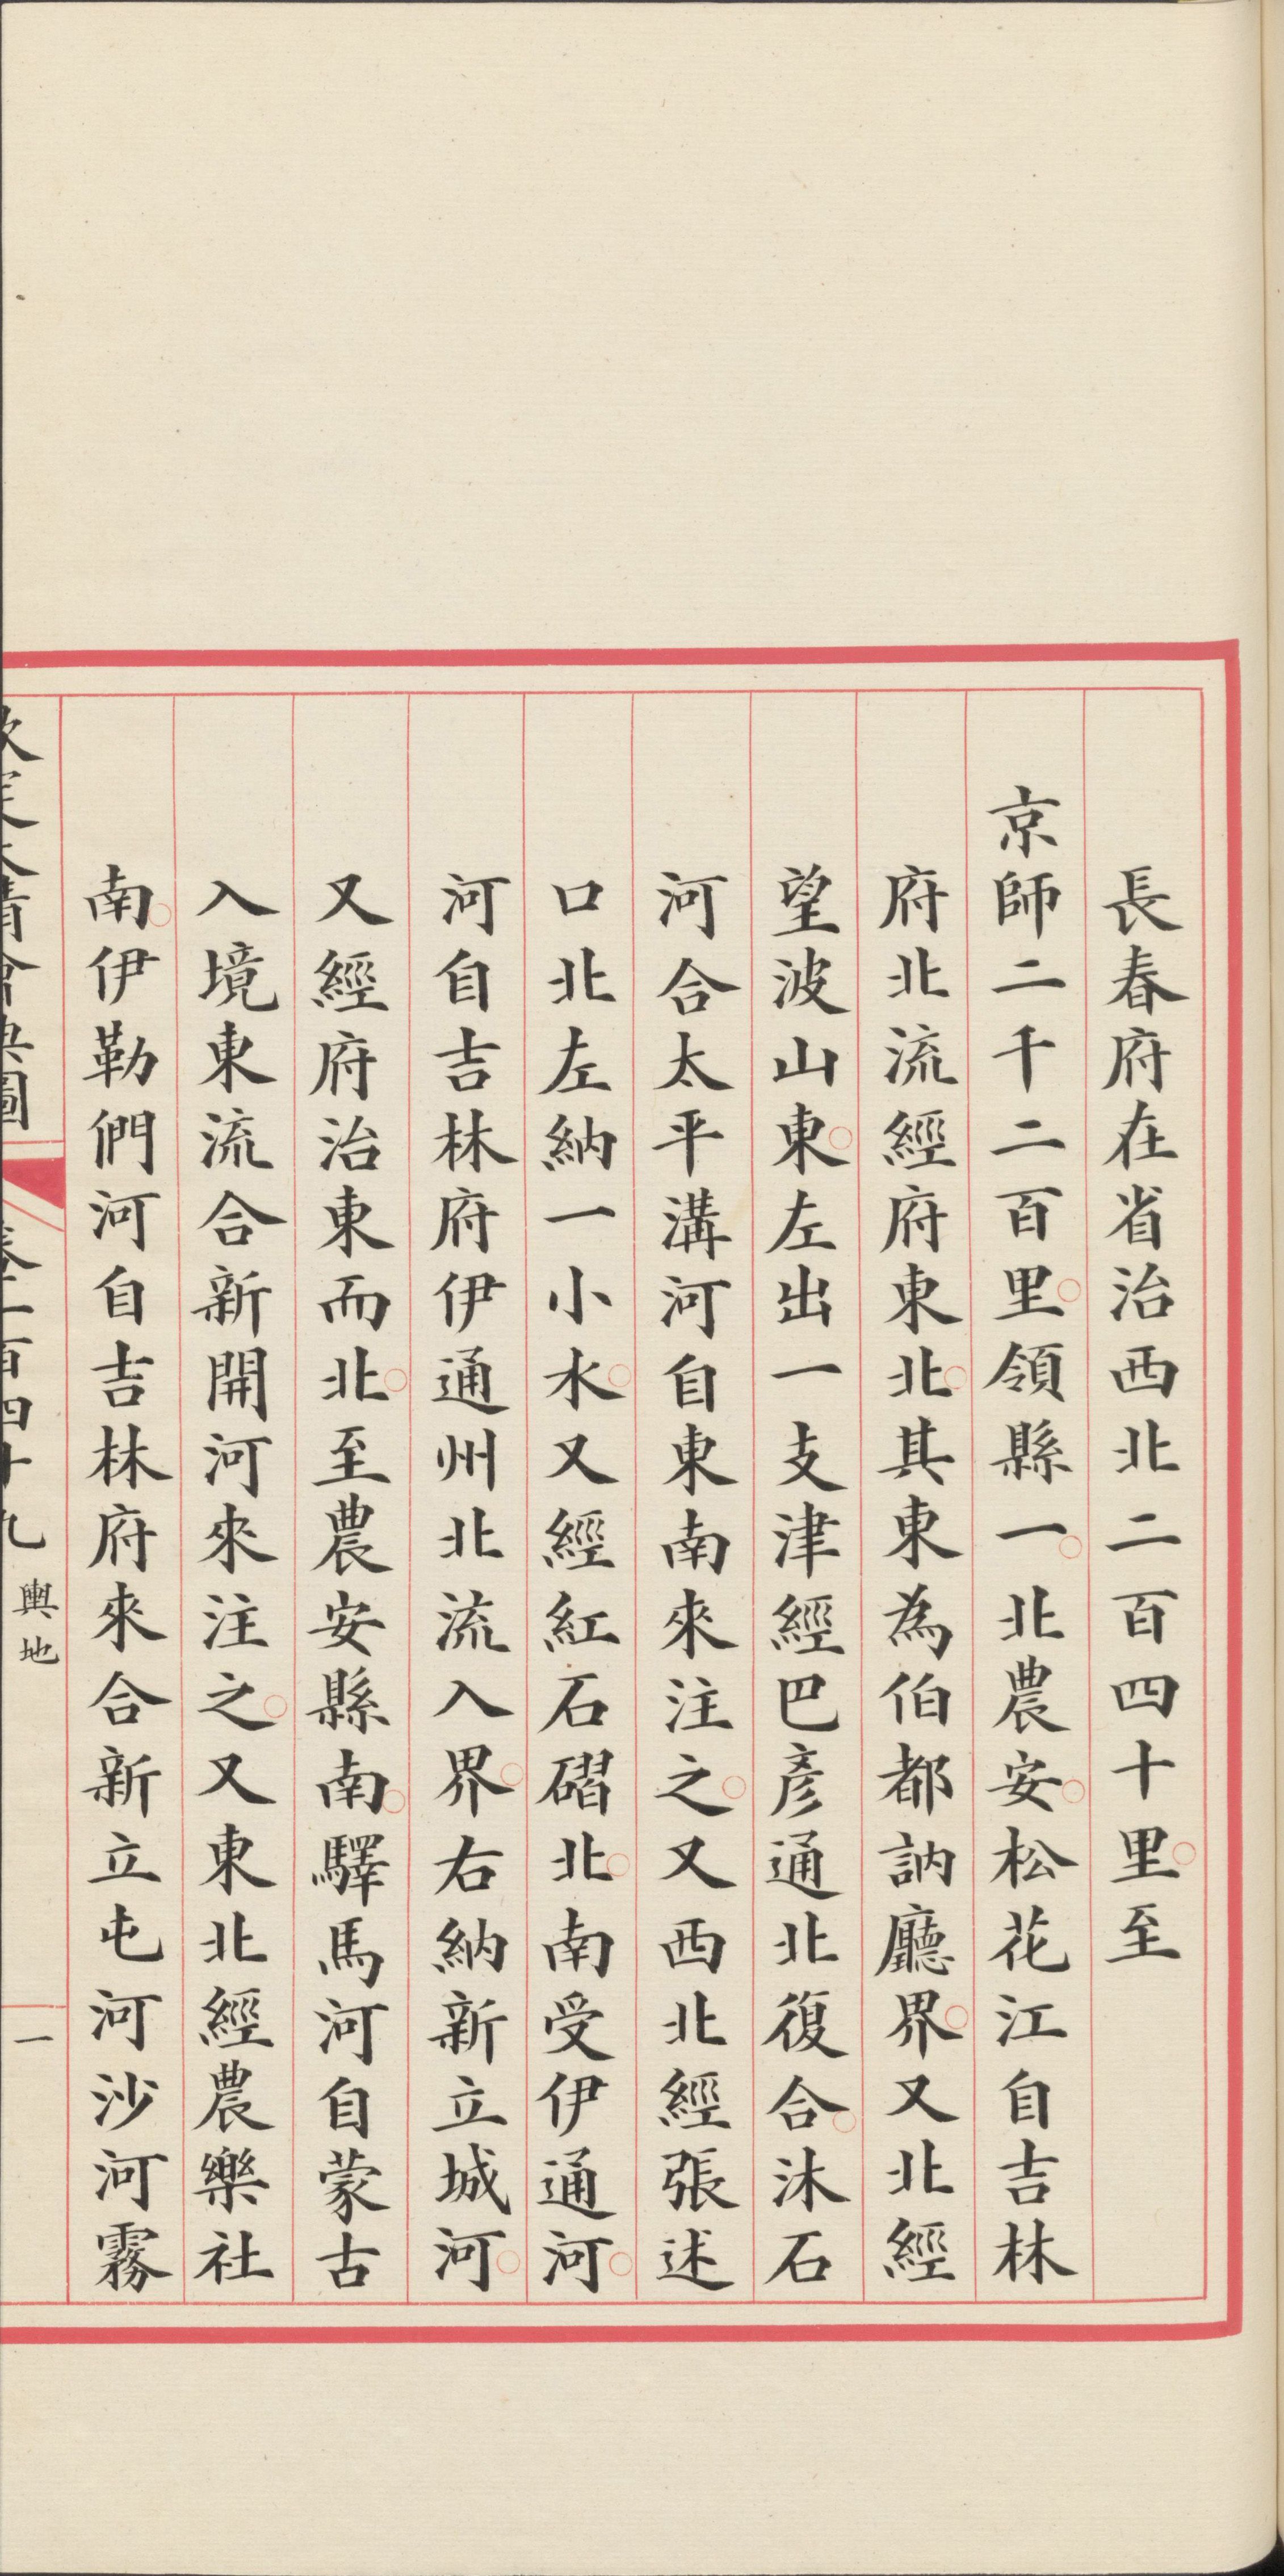 長春府在省治西北二百四十里○至
京師二千二百里○領縣一○北農安○松花江自吉林
府北流經府東北○其東為伯都訥廳界○又北經
望波山東○左出一支津經巴彥通北復合○沐石
河合太平溝河自東南來注之○又西北經張述
口北左納一小水○又經紅石磖北○南受伊通河○
河自吉林府伊通州北流入界○右納新立城河○
又經府治東而北○至農安縣南○驛馬河自蒙古
入境東流合新開河來注之○又東北經農樂社
南○伊勒們河自吉林府來合新立屯河沙河霧
欽定大清會典圖 卷二百四十九 輿地 一